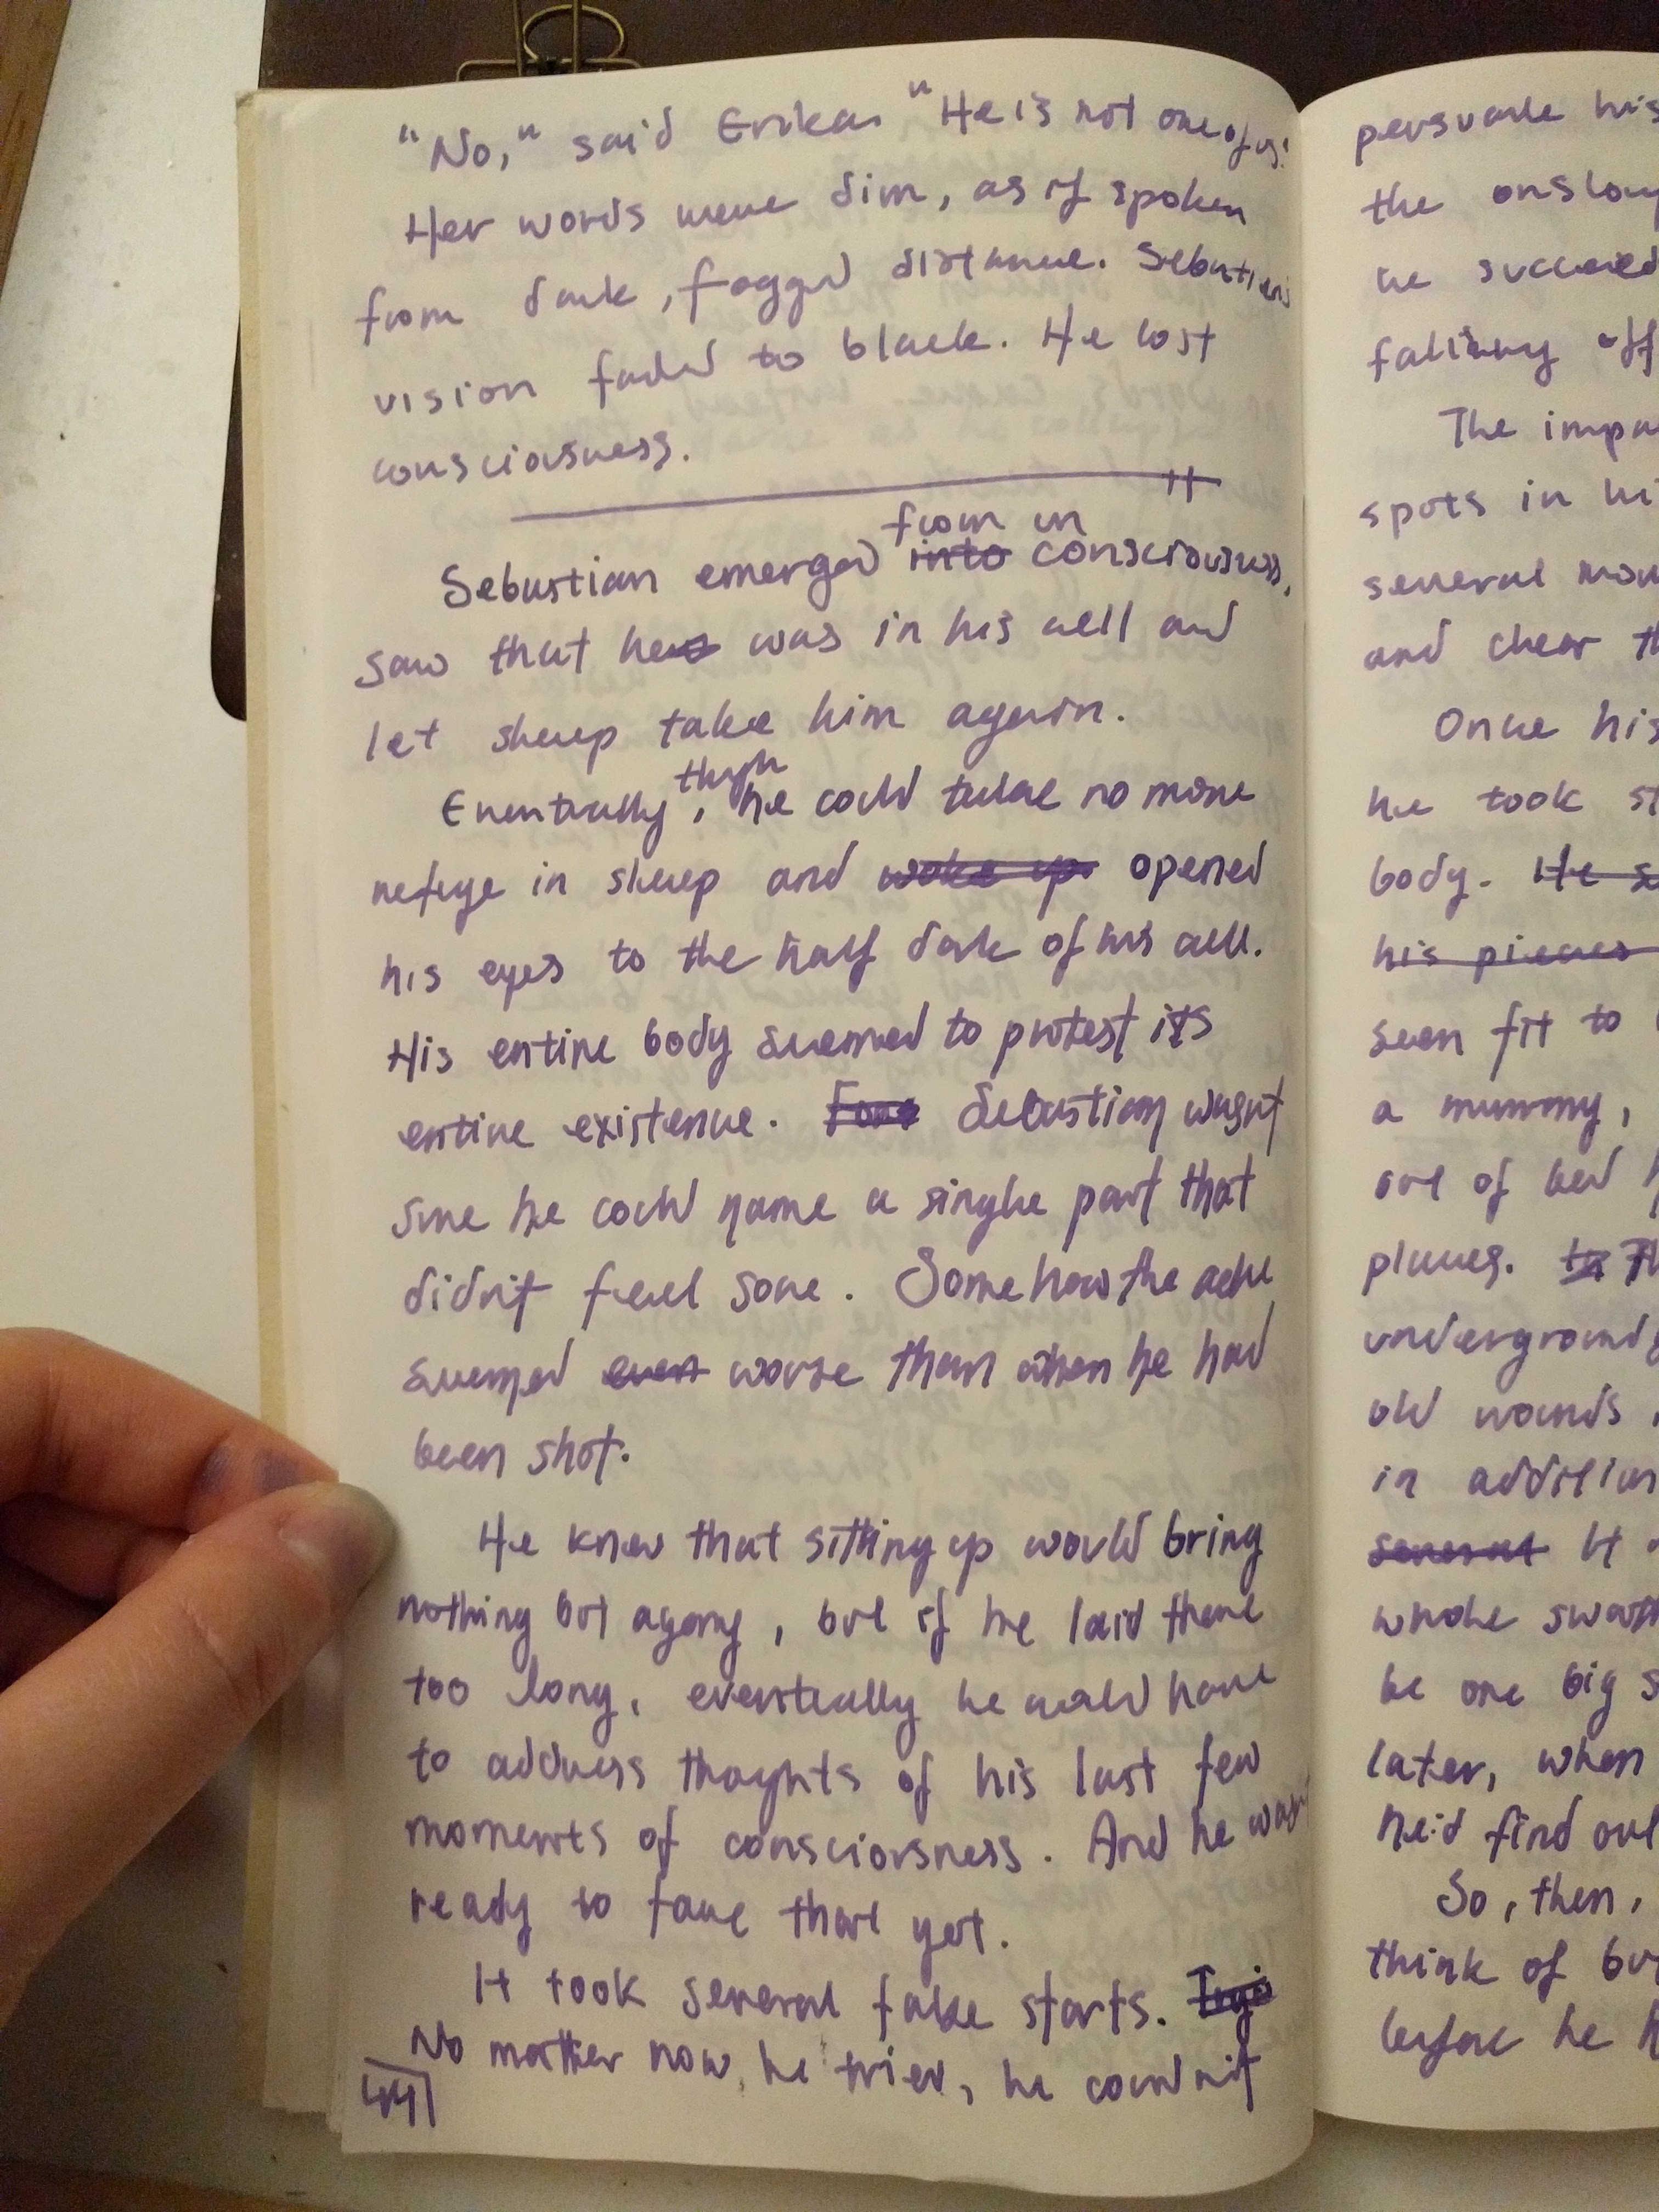 "No," said Erika. "He is not one of us."
Her words were dim, as if spoken
from dark, fogged distance. Sebastian's
vision faded to black. He lost
consciousness.
from un
Sebastian emerged into consciousness,
saw that he was in his cell and
let sleep take him again.
though
Eventually, he could take no more
refuge in sleep and woke up opened
his eyes to the half dark of his cell.
His entire body seemed to protest its
entire existence. Sebastian wasn't
sure he could name a single part that
didn't feel sore. Somehow the ache
seemed even worse than when he had
been shot.
He knew that sitting up would bring
nothing but agony, but if he laid there
too long, eventually he would have
to address thoughts of his last few
moments of consciousness. And he wasn't
ready to face that yet.
It took several false starts.
No matter how he tried, he couldn't
441
persuade his
the
he succeeded
falling off
The
spots in
several
and clear
Once his
he took
body. He
his pieces
seen fit to
a mummy,
out of bed
places. to
underground
old wounds
in addition
several It
whole
be one big
later, when
he'd find out
So, then,
think of
before he